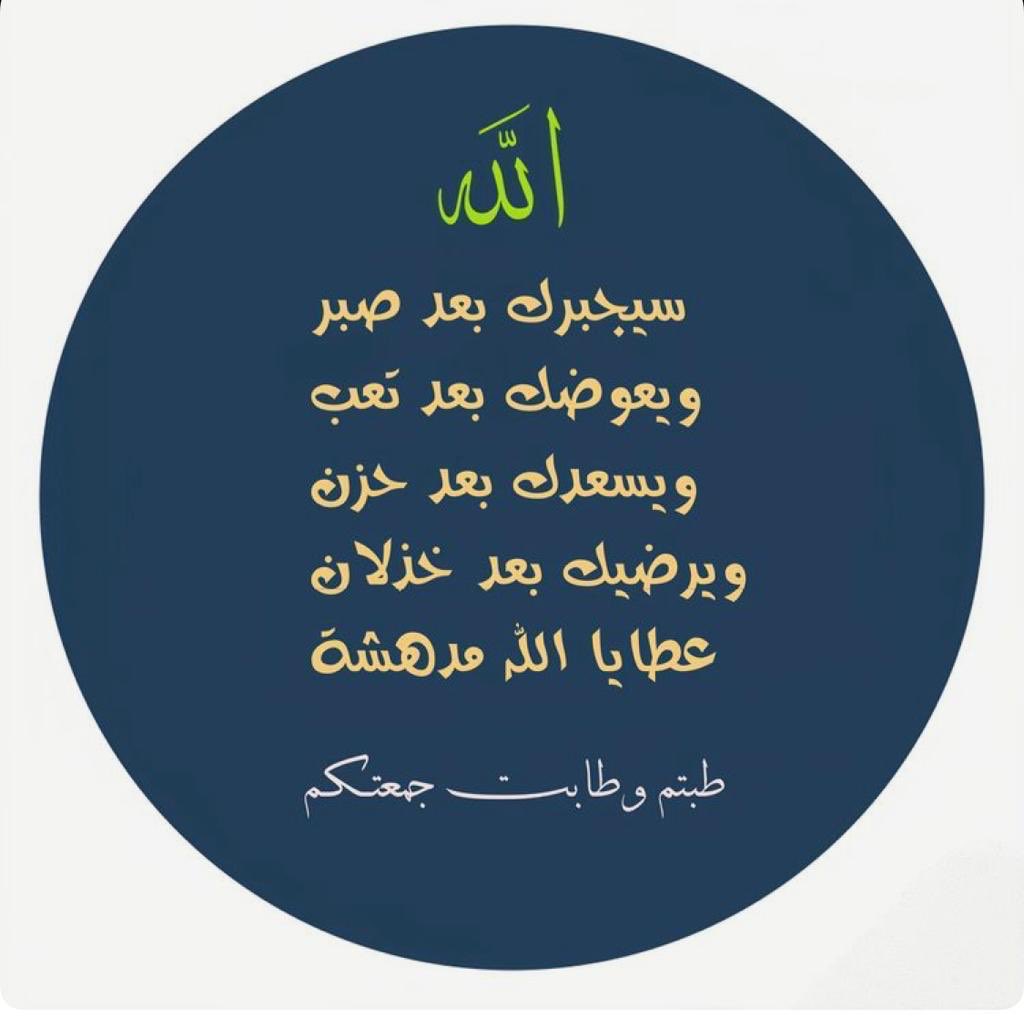 الله
سيجبرك بعد صبر
ويعوضك بعد تعب
ويسعدك بعد حزن
ويرضيك بعد خذلان
عطايا الله مدهشة
طبتم وطابت جمعتكم